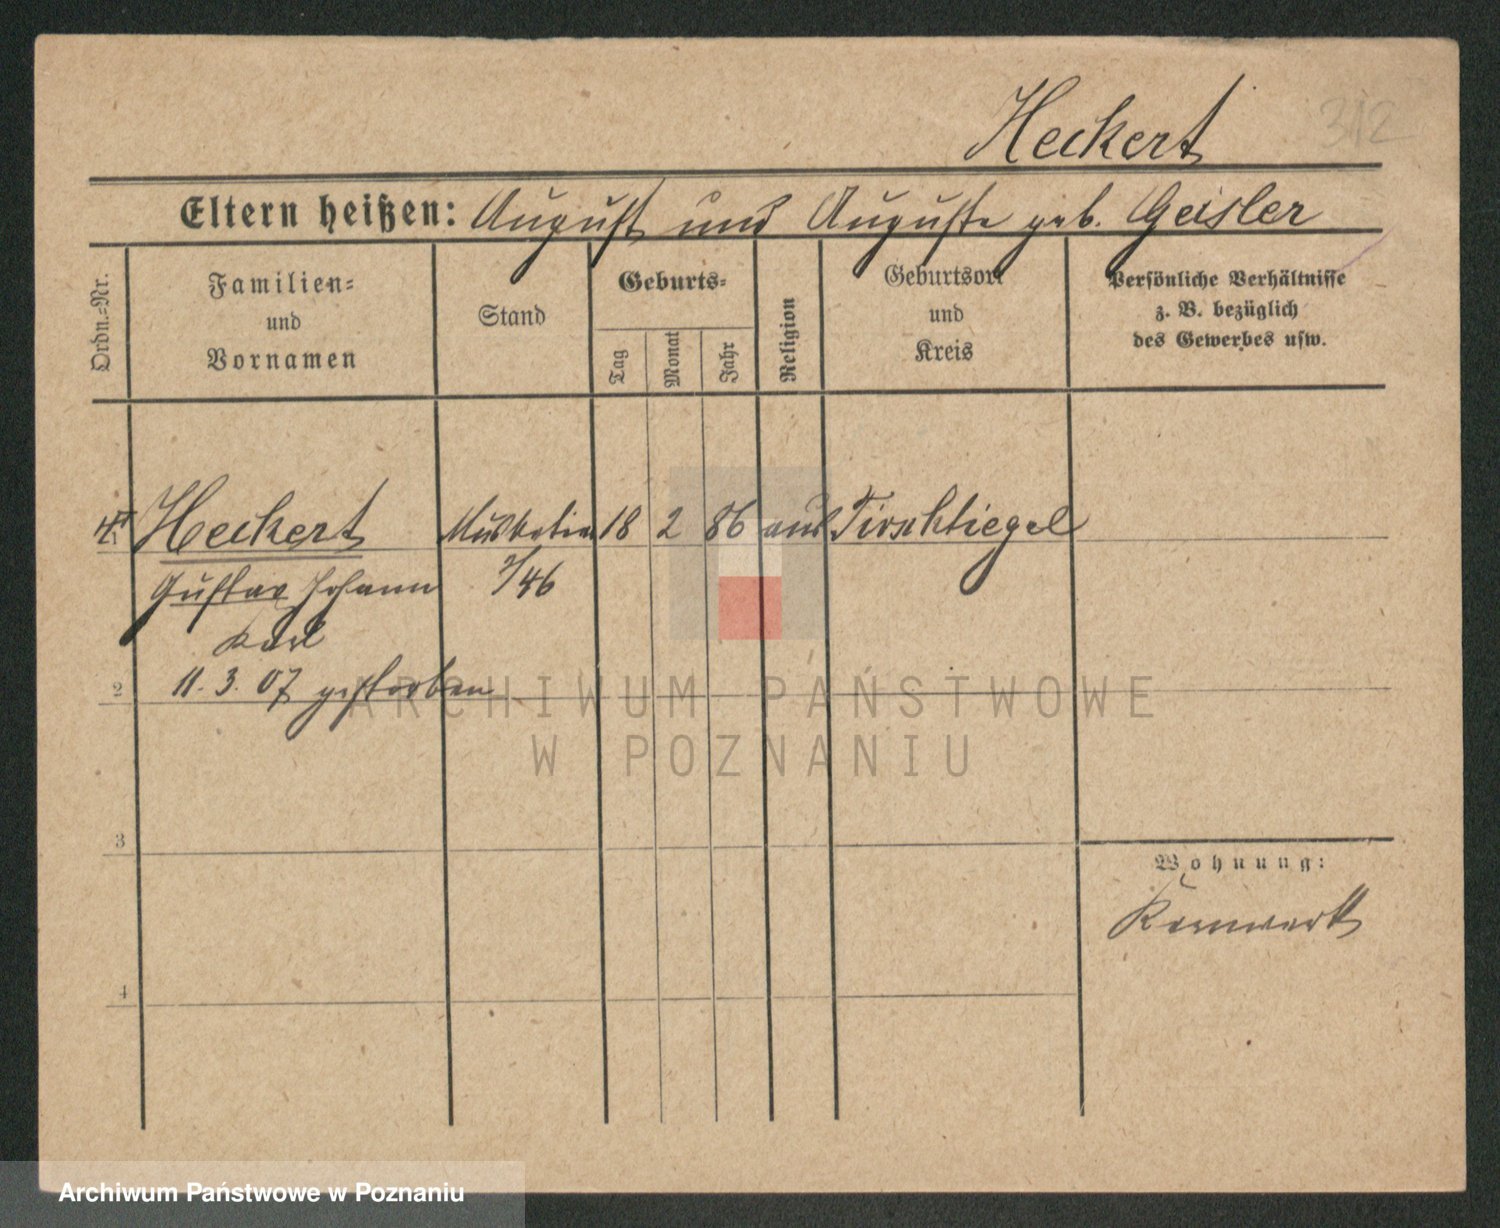 Heckert 312
Eltern heißen: August und Auguste geb. Geisler
Ordn.-Nr.
Familien-
und
Vornamen
Stand
Geburts-
Tag
Monat
Jahr
Religion
Geburtsort
und
Kreis
Persönliche Verhältnisse
z. B. bezüglich
des Gewerbes usw.
Heckert Musketier 18 2 86 Tirschtiegel
Gustav Johann 7/46
Karl
2 11. 3. 07 gestorben
ARCHIWUM PAŃSTWOWE
W POZNANIU
3
Wohnung:
Kernwerk
4
Archiwum Państwowe w Poznaniu